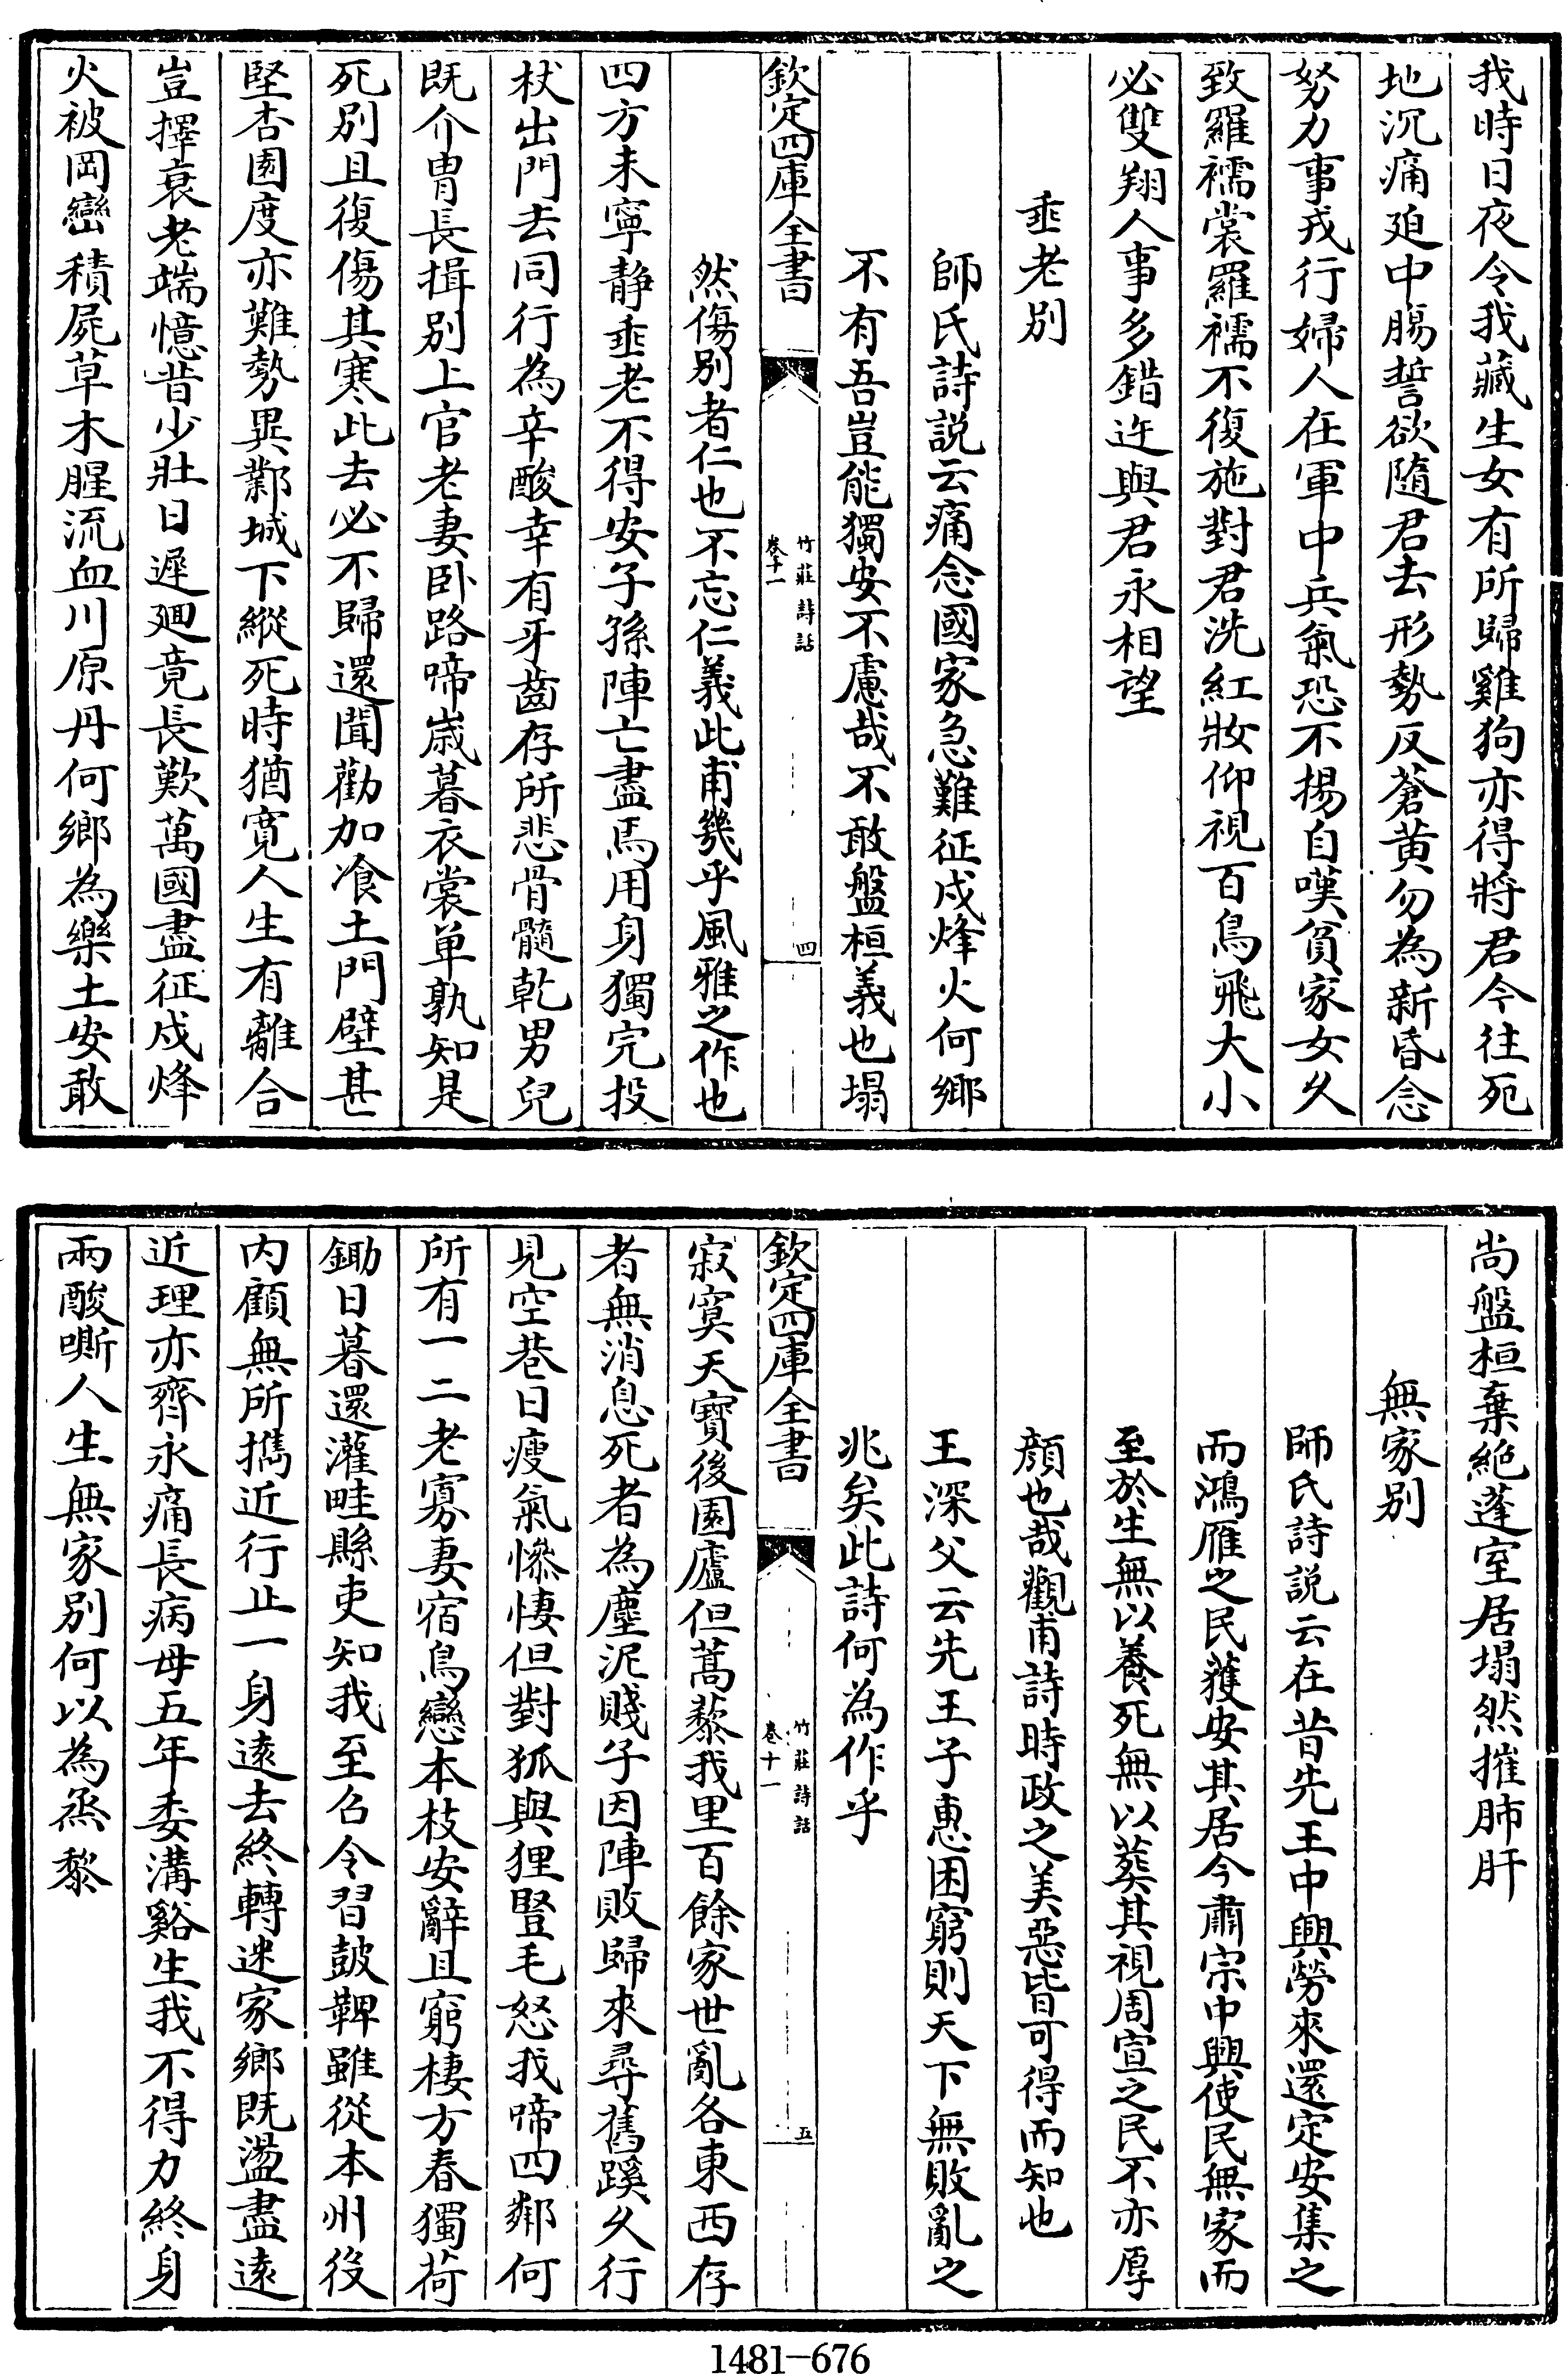 我時日夜令我藏生女有所歸雞狗亦得將君今往死
地沉痛廹中腸誓欲隨君去形勢反蒼黄勿為新昏念
努力事戎行婦人在軍中兵氣恐不揚自嘆貧家女久
致羅襦裳羅襦不復施對君洗紅妝仰視百鳥飛大小
必雙翔人事多錯迕與君永相望
垂老别
師氏詩説云痛念國家急難征戍烽火何鄉
不有吾豈能獨安不慮哉不敢盤桓義也塌
欽定四庫全書
竹莊詩話
卷十一
四
然傷别者仁也不忘仁義此甫幾乎風雅之作也
四方未寧静垂老不得安子孫陣亡盡焉用身獨完投
杖出門去同行為辛酸幸有牙齒存所悲骨髓乾男兒
既介胄長揖别上官老妻卧路啼歲暮衣裳单孰知是
死别且復傷其寒此去必不歸還聞勸加飡土門壁甚
堅杏園度亦難勢異鄴城下縱死時猶寛人生有離合
豈擇衰老端憶昔少壯日遲廻竟長歎萬國盡征戍烽
火被岡巒積屍草木腥流血川原丹何鄉為樂土安敢
尚盤桓棄絶蓬室居塌然摧肺肝
無家别
師氏詩説云在昔先王中興勞來還定安集之
而鴻雁之民獲安其居今肅宗中興使民無家而
至於生無以養死無以葬其視周宣之民不亦厚
顔也哉觀甫詩時政之美惡皆可得而知也
王深父云先王子惠困窮則天下無敗亂之
兆矣此詩何為作乎
欽定四庫全書
竹莊詩話
卷十一
五
寂寞天寳後園廬但蒿藜我里百餘家世亂各東西存
者無消息死者為塵泥賤子因陣敗歸來尋舊蹊久行
見空巷日瘦氣慘悽但對狐與狸豎毛怒我啼四鄰何
所有一二老寡妻宿鳥戀本枝安辭且窮棲方春獨荷
鋤日暮還灌畦縣吏知我至召令習鼓鞞雖從本州役
内顧無所攜近行止一身逺去終轉迷家鄉既盪盡逺
近理亦齊永痛長病母五年委溝谿生我不得力終身
兩酸嘶人生無家别何以為烝黎
1481-676